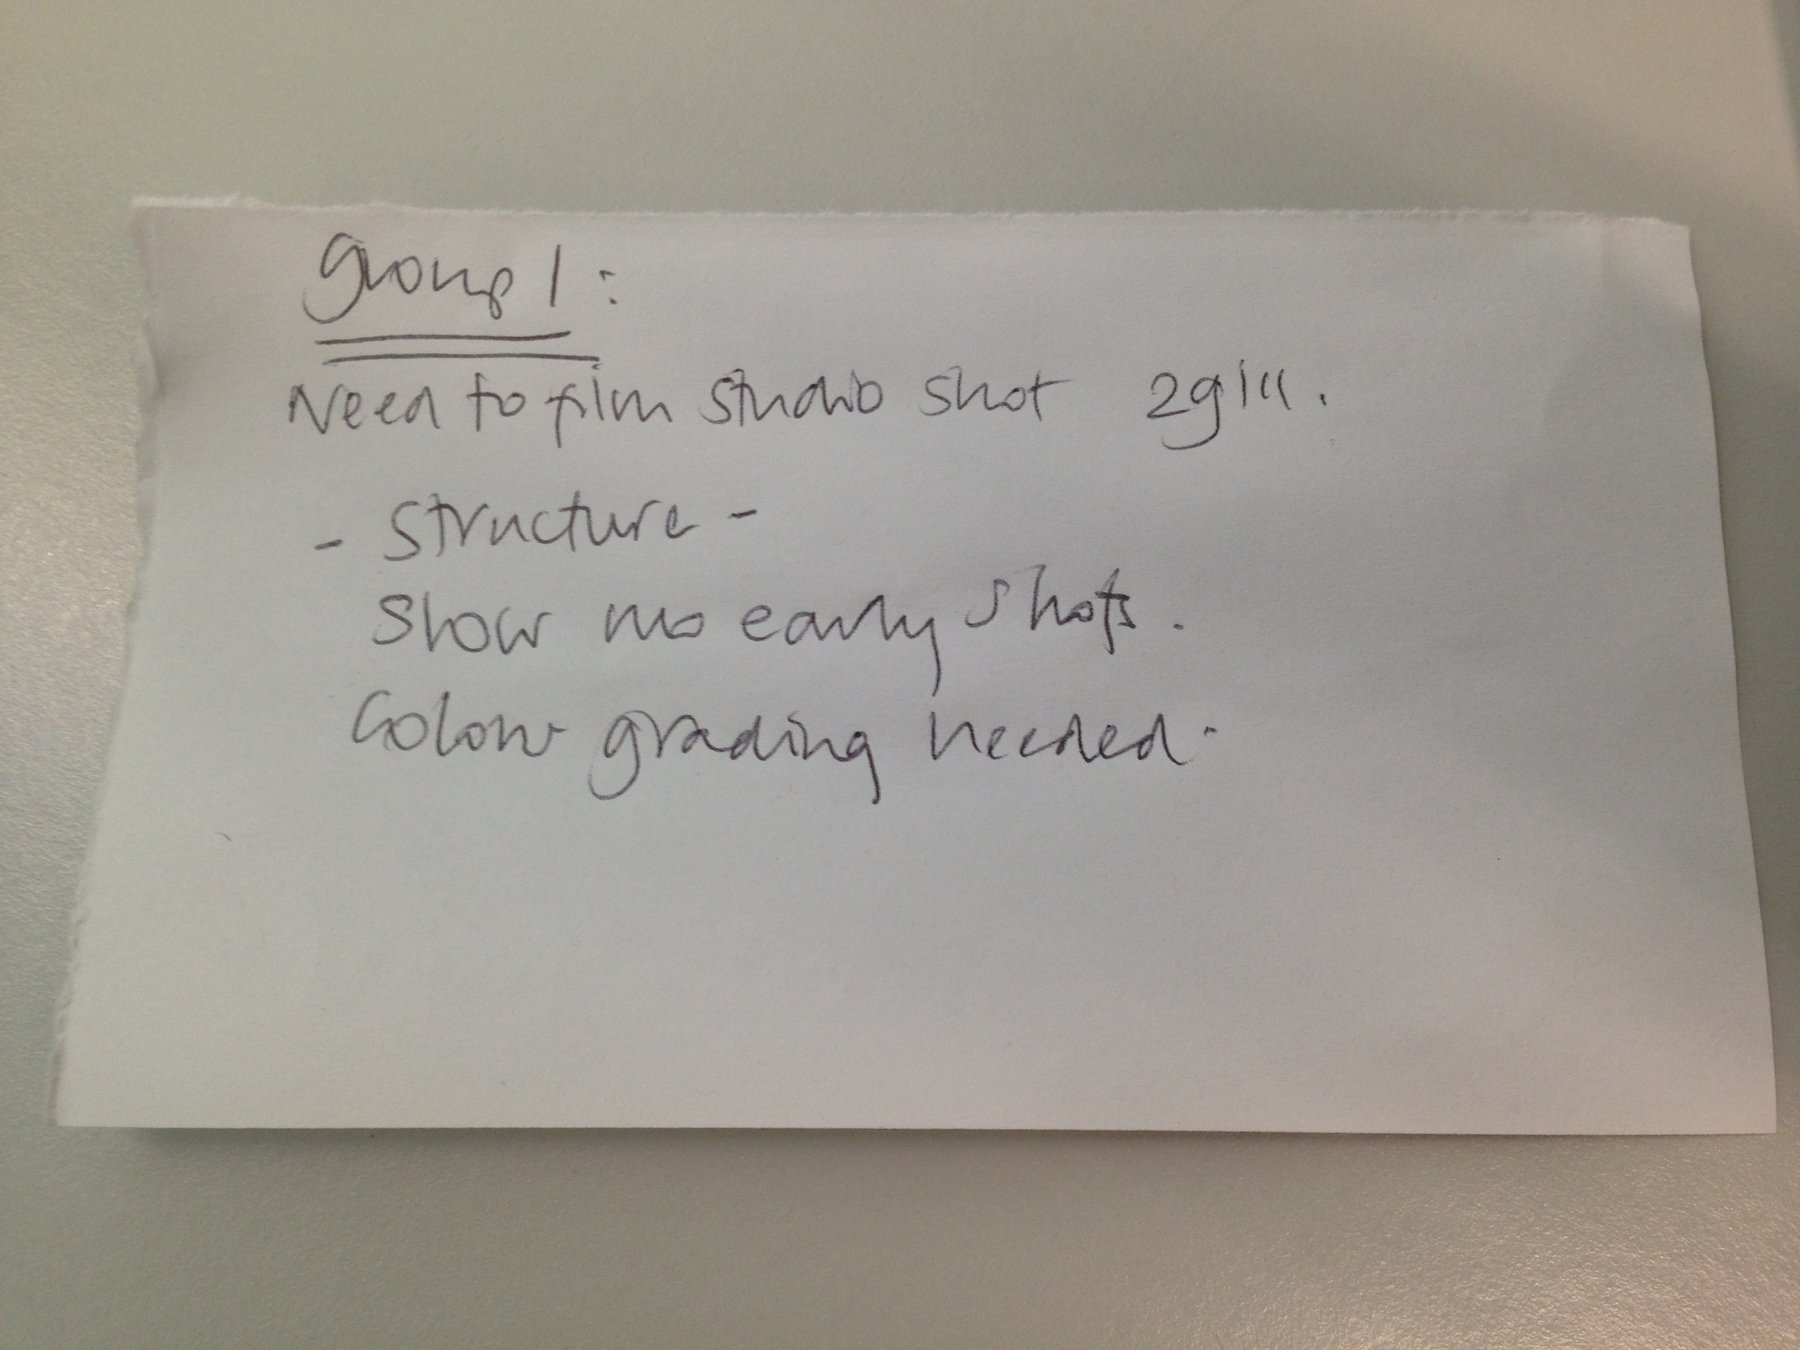 Group 1:
Need to film studio shot
- Structure -
Show no early shots.
Colour grading needed.